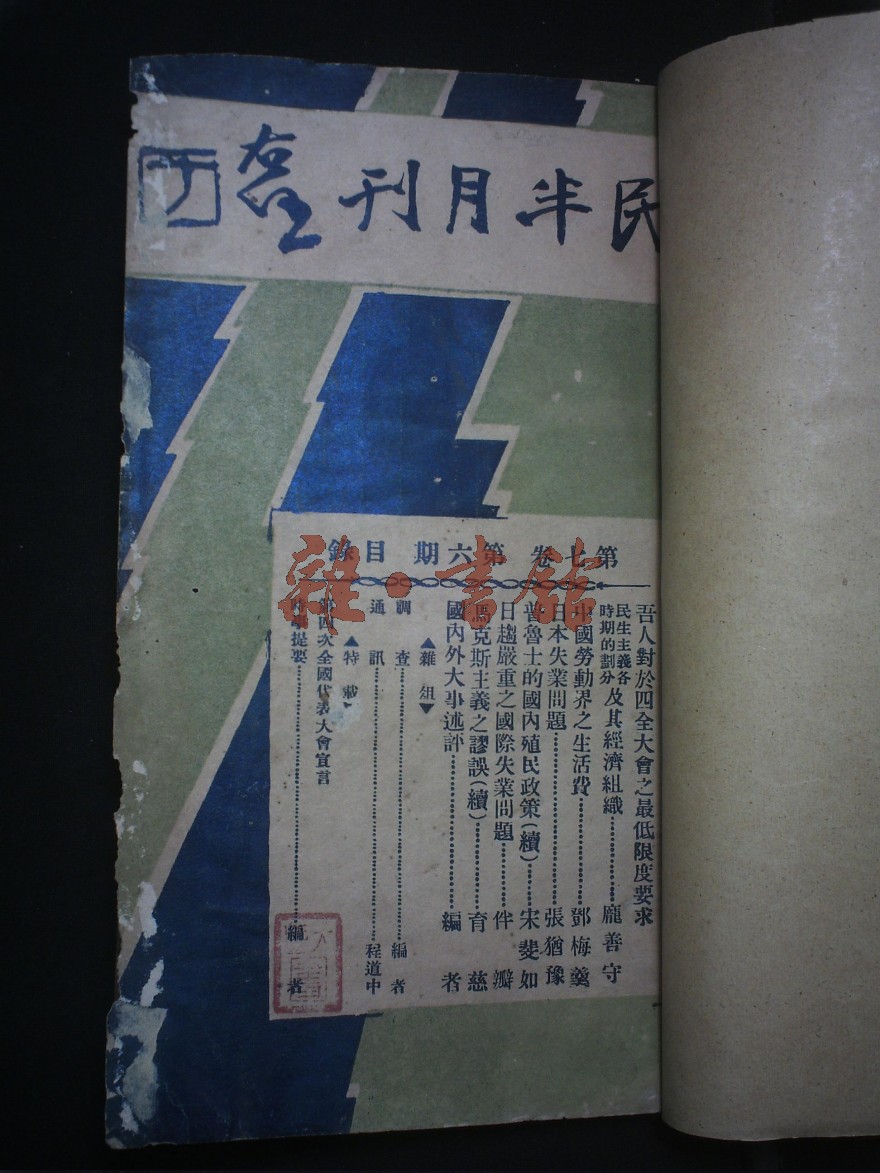 民半月刊
第七卷 第六期 目錄
吾人對於四全大會之最低限度要求
民生主義各時期的劃分及其經濟組織……龐善守
中國勞動界之生活費……鄧梅羹
日本失業問題……張猶豫
普魯士的國內殖民政策(續)……宋斐如
日趨嚴重之國際失業問題……伴瓣
馬克斯主義之謬誤(續)……育慈
國內外大事述評……編者
▲雜俎▼
調查……編者
通訊……程道中
▲特載▼
第四次全國代表大會宣言
時事提要……編者
雜·書館